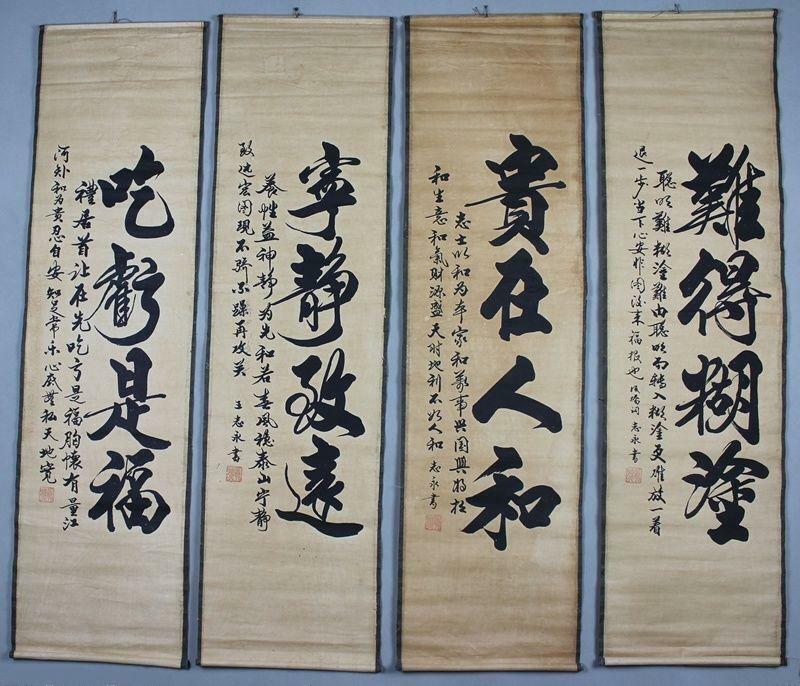 難得糊塗
聪明難糊塗難由聪明而轉入糊塗更难放一着
退一步当下心安非图後来福报也 板桥词 志永書
貴在人和
志士以和为本家和萬事興国興將相
和生意和氣财源盛天时地利不如人和 志永書
寧靜致遠
养性益神静为先和若春风穩泰山宁静
致远宏图现不骄不躁再攻关 王志永書
吃虧是福
禮居首让在先吃亏是福胸懷有量江
河纳和为贵忍自安知足常乐心底無私天地宽